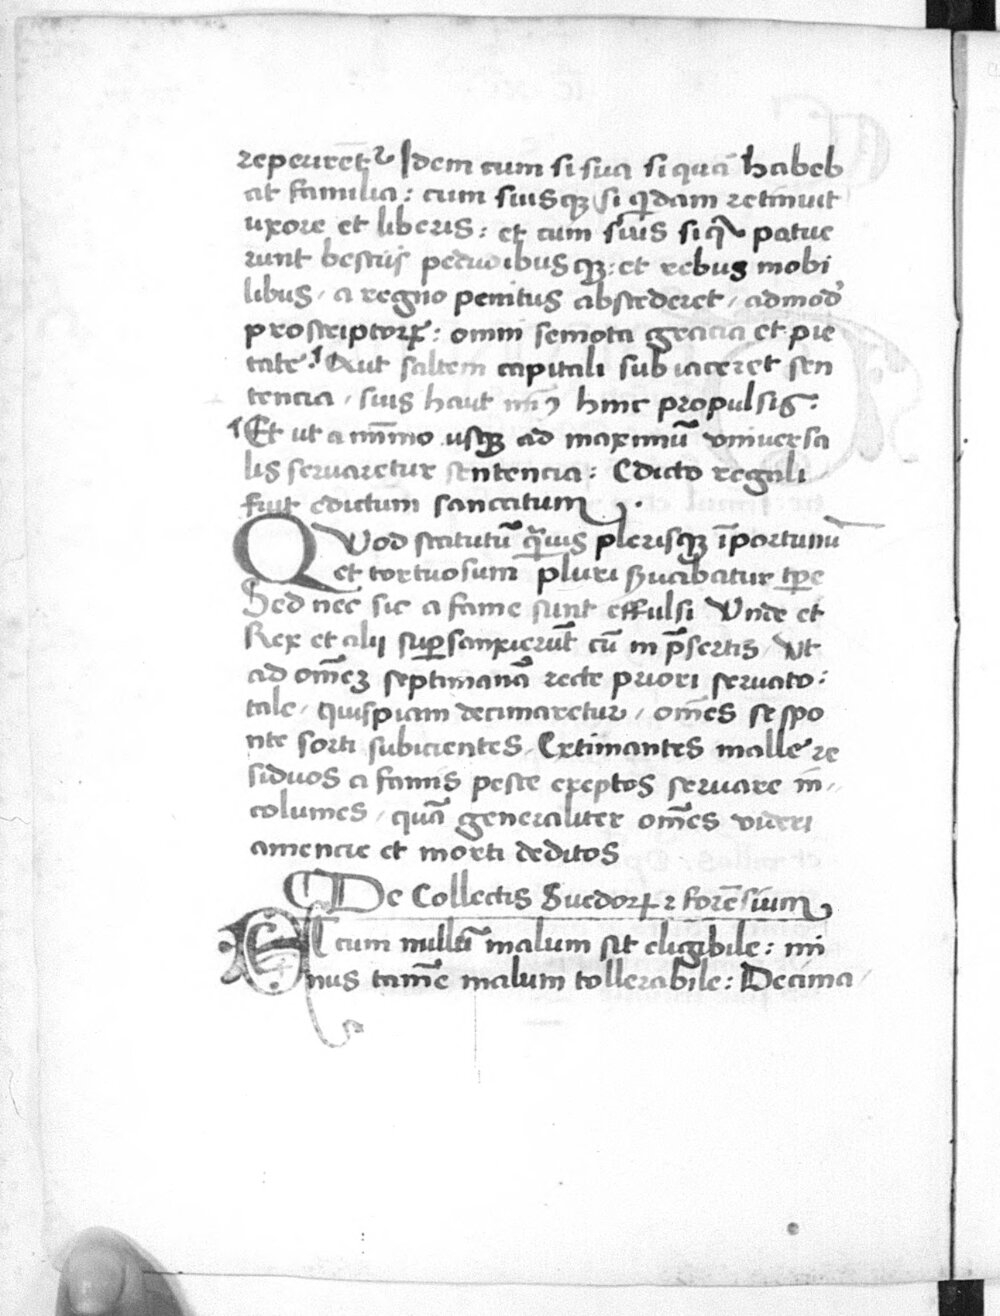 reperiret̄ᷣ Idem cum si sua si quā habeb
at familia: cum suisqꝫ si qͥdam retinuit
uxore et liberis: et cum suis si q̄ patue
runt bestiis pecudibusqꝫ: et rebus mobi
libus / a regno penitus abscederet / admod̕
proscriptorꝝ: omni semota gracia et pie
tate. Aut saltem capitali subiaceret sen
tencia / suis haut hinc propulsis:
Et ut a minīo usqꝫ ad maximū vniuersa
lis servaretur sentencia: Edicto regali
fuit edictum sanccitum
QVod statutū qͣuis plerisqꝫ īportunū
et tortuosum pluri
Sed nec sic a fame sunt effulsi Vnde et
Rex et alij suꝑ sanxierūt cū
ad om̄eꝫ septimanā recte priori servato:
tale / quispiam decimaretur / om̄es se spo
nte sorti subicientes / Extimantes malle re
siduos a famis peste exeptos servare in=
columes / quā generaliter om̄es videri
amencie et morti deditos
De Collectis Suedorꝝ ⁊ forēsium
Et cum nullū malum sit eligibile: mi
nus tamē malum tollerabile: Decima